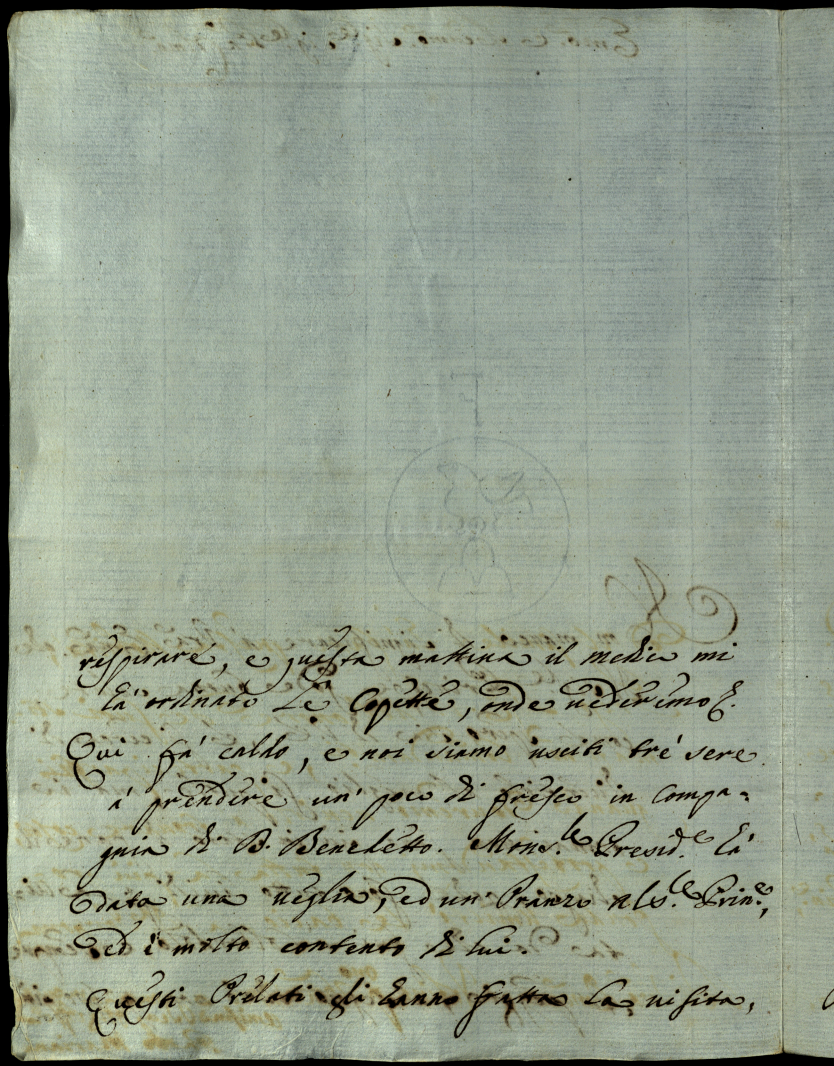 respirare, e questa mattina il medico mi
hà ordinato Le Copette, onde uederemo
Qui fà caldo, e noi siamo usciti tré sere
à prendere un' poco di fresco in compa=
gnia di B. Benedetto. Mons.le Presid.e hà
data una ueglia, ed un' Pranzo al S.le Prin.e,
ed è molto contento di lui.
Questi Prelati gli hanno fatta la uisita,